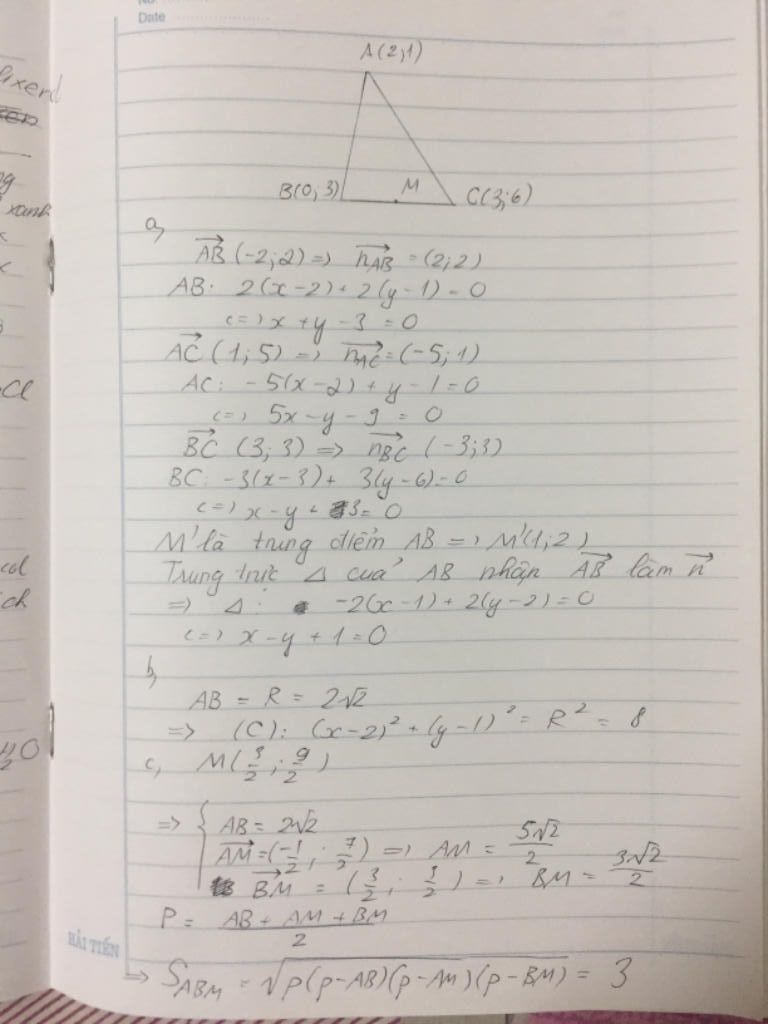 No.
Date
A(2;1)
B(0;3) M C(3;6)
a,
$\overrightarrow{AB}$ (-2;2) => $\overrightarrow{n_{AB}}$ = (2;2)
AB: 2(x-2) + 2(y-1) = 0
<=> x + y - 3 = 0
$\overrightarrow{AC}$ (1;5) => $\overrightarrow{n_{AC}}$ = (-5;1)
AC: -5(x-2) + y - 1 = 0
<=> 5x - y - 9 = 0
$\overrightarrow{BC}$ (3;3) => $\overrightarrow{n_{BC}}$ (-3;3)
BC: -3(x-3) + 3(y-6) = 0
<=> x - y + 3 = 0
M' là trung điểm AB => M'(1;2)
Trung trực Δ của AB nhận $\overrightarrow{AB}$ làm $\overrightarrow{n}$
=> Δ: -2(x-1) + 2(y-2) = 0
<=> x - y + 1 = 0
b,
AB = R = 2√2
=> (C): (x-2)² + (y-1)² = R² = 8
c, M(3/2; 9/2)
=> { AB = 2√2
$\overrightarrow{AM}$ = (-1/2; 7/2) => AM = 5√2/2
$\overrightarrow{BM}$ = (3/2; 3/2) => BM = 3√2/2
P = (AB + AM + BM)/2
=> S_{ABM} = √(p(p-AB)(p-AM)(p-BM)) = 3
HẢI TIẾN
xanh
Cl
ch